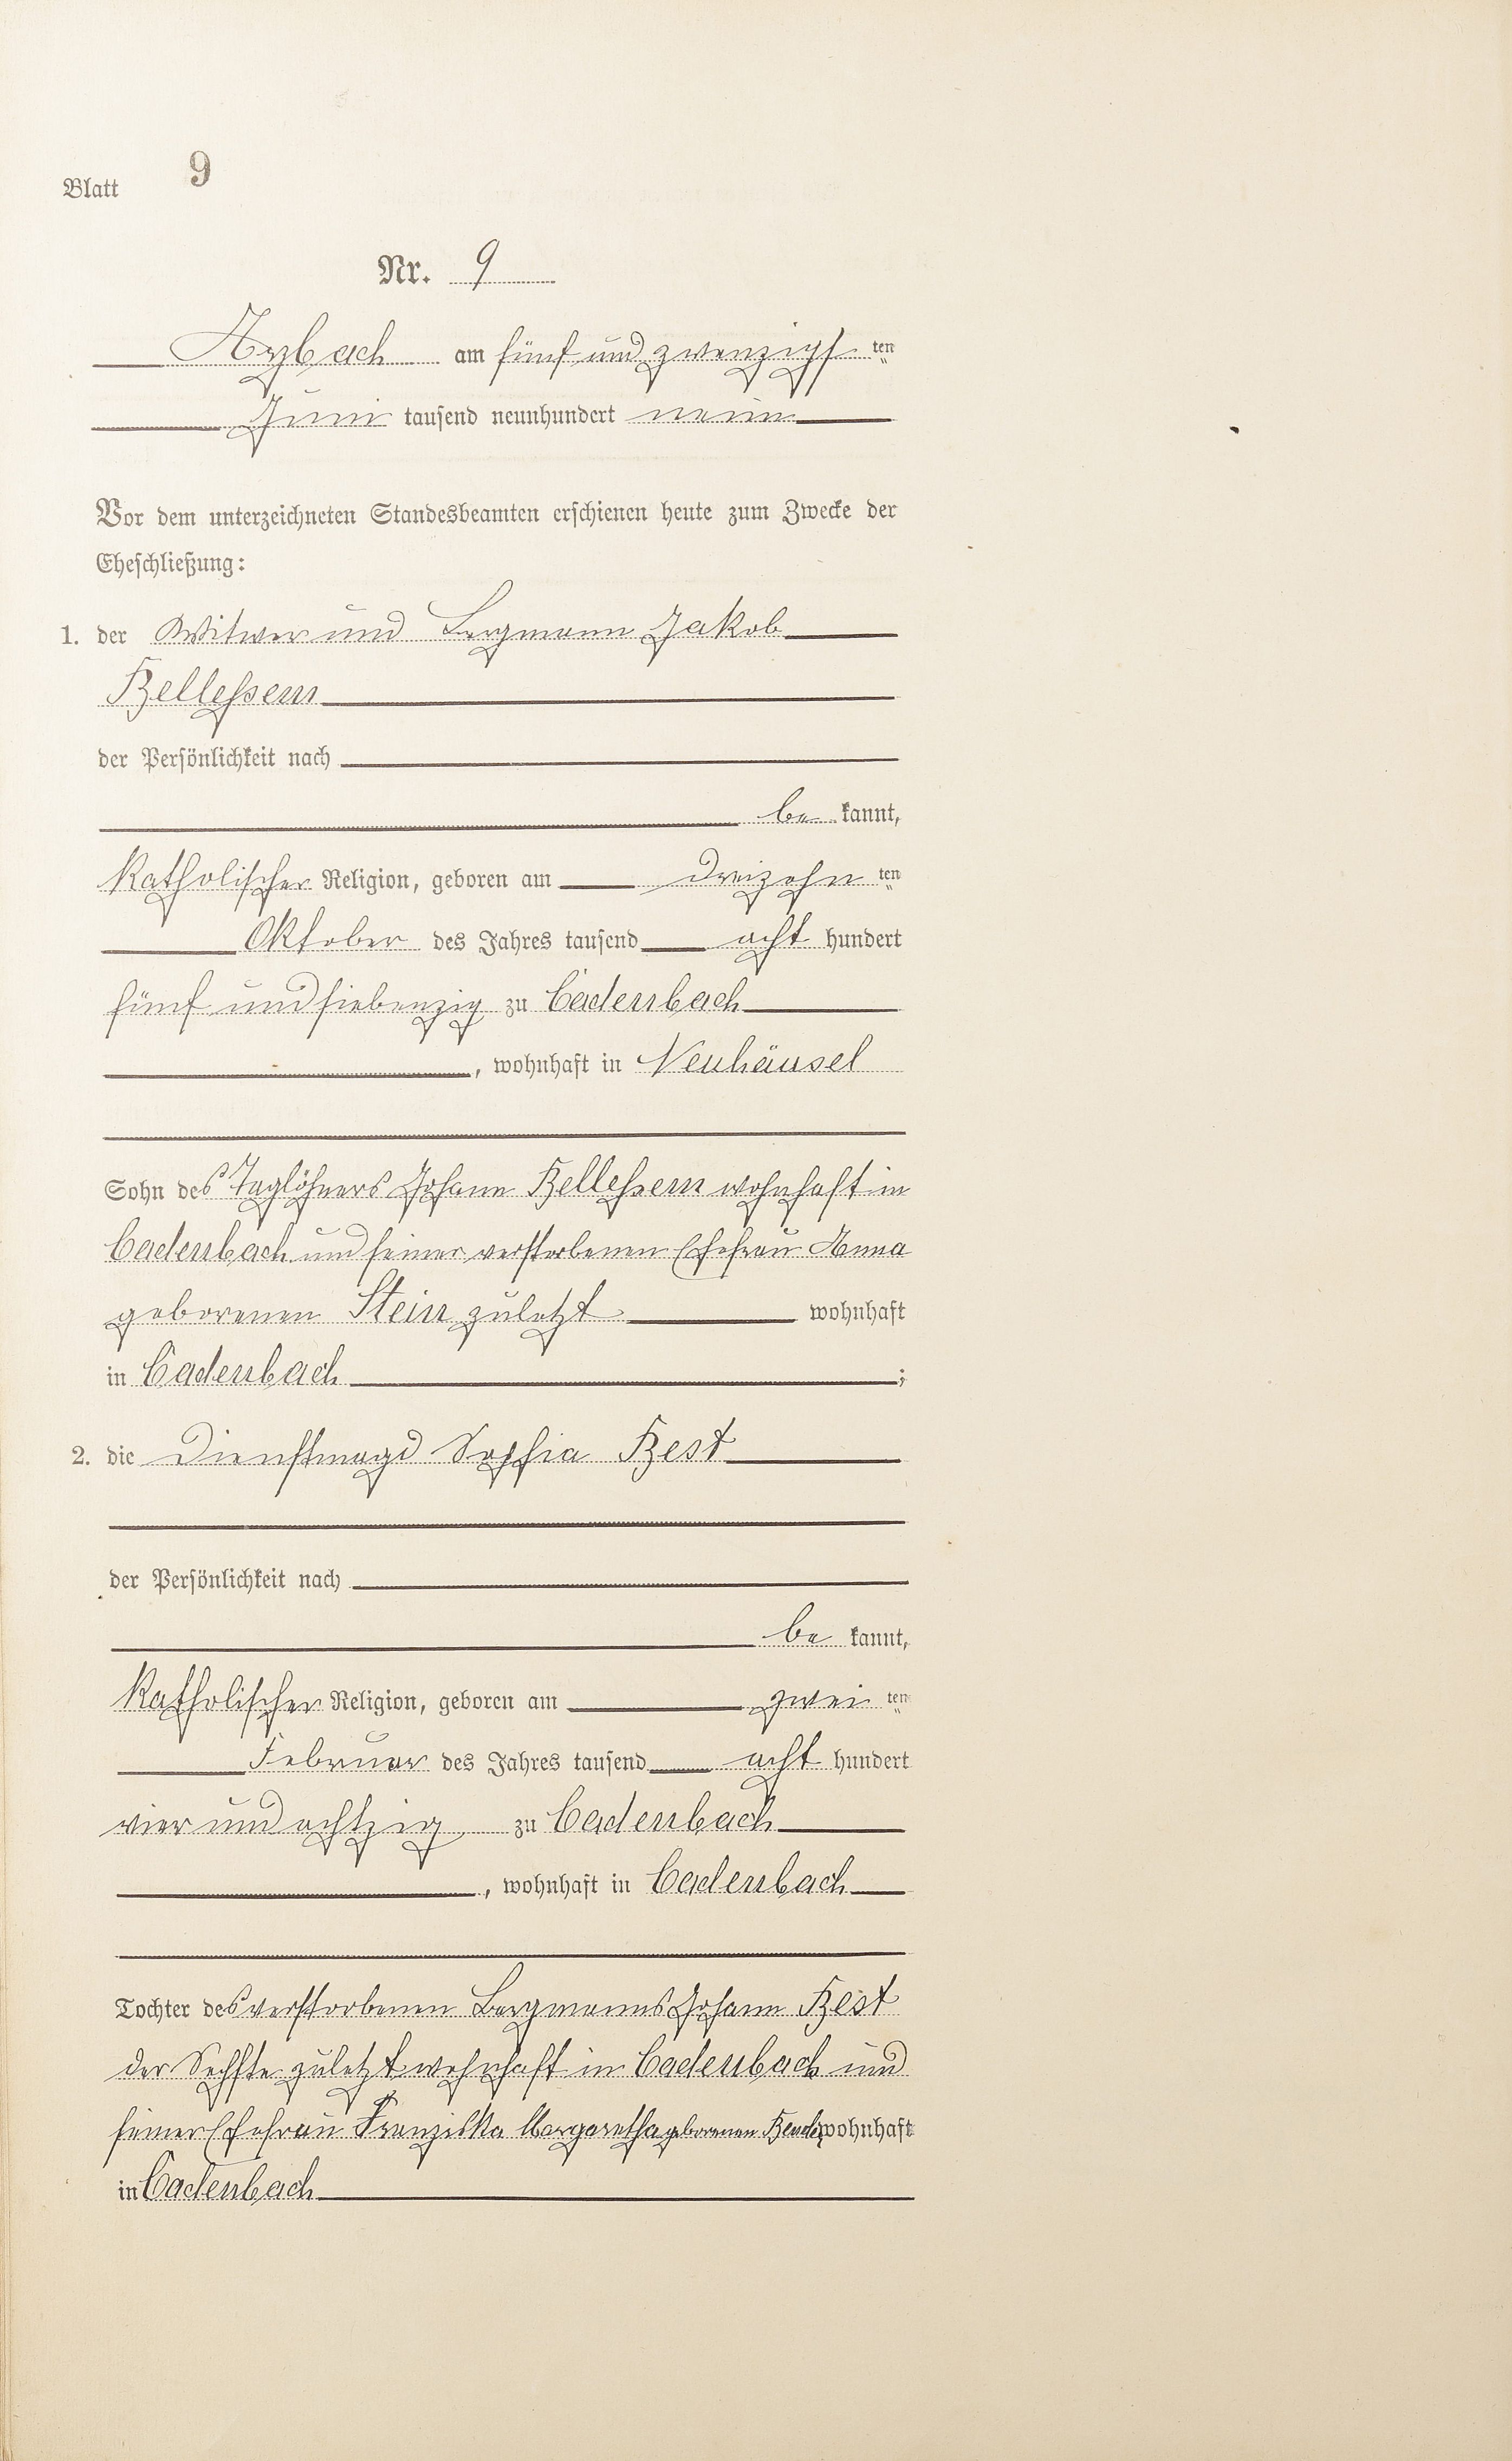 Blatt 9
Nr. 9
Arzbach am fünf und zwanzigsten
Juni tausend neunhundert neun
Vor dem unterzeichneten Standesbeamten erschienen heute zum Zwecke der
Eheschließung:
1. der Witwer und Bergmann Jakob
Bellessem
der Persönlichkeit nach
be kannt,
katholischer Religion, geboren am dreizehn ten
Oktober des Jahres tausend acht hundert
fünf und siebenzig zu Cadenbach
, wohnhaft in Neuhäusel
Sohn des Taglöhners Johann Bellessem wohnhaft in
Cadenbach und seiner verstorbenen Ehefrau Anna
geborenen Stein zuletzt wohnhaft
in Cadenbach ;
2. die Dienstmagd Sophia Best
der Persönlichkeit nach
be kannt,
katholischer Religion, geboren am zwei ten
Februar des Jahres tausend acht hundert
vier und achtzig zu Cadenbach
, wohnhaft in Cadenbach
Tochter des verstorbenen Bergmanns Johann Best
der Sechste zuletzt wohnhaft in Cadenbach und
seiner Ehefrau Franziska Margaretha geborenen wohnhaft
in Cadenbach